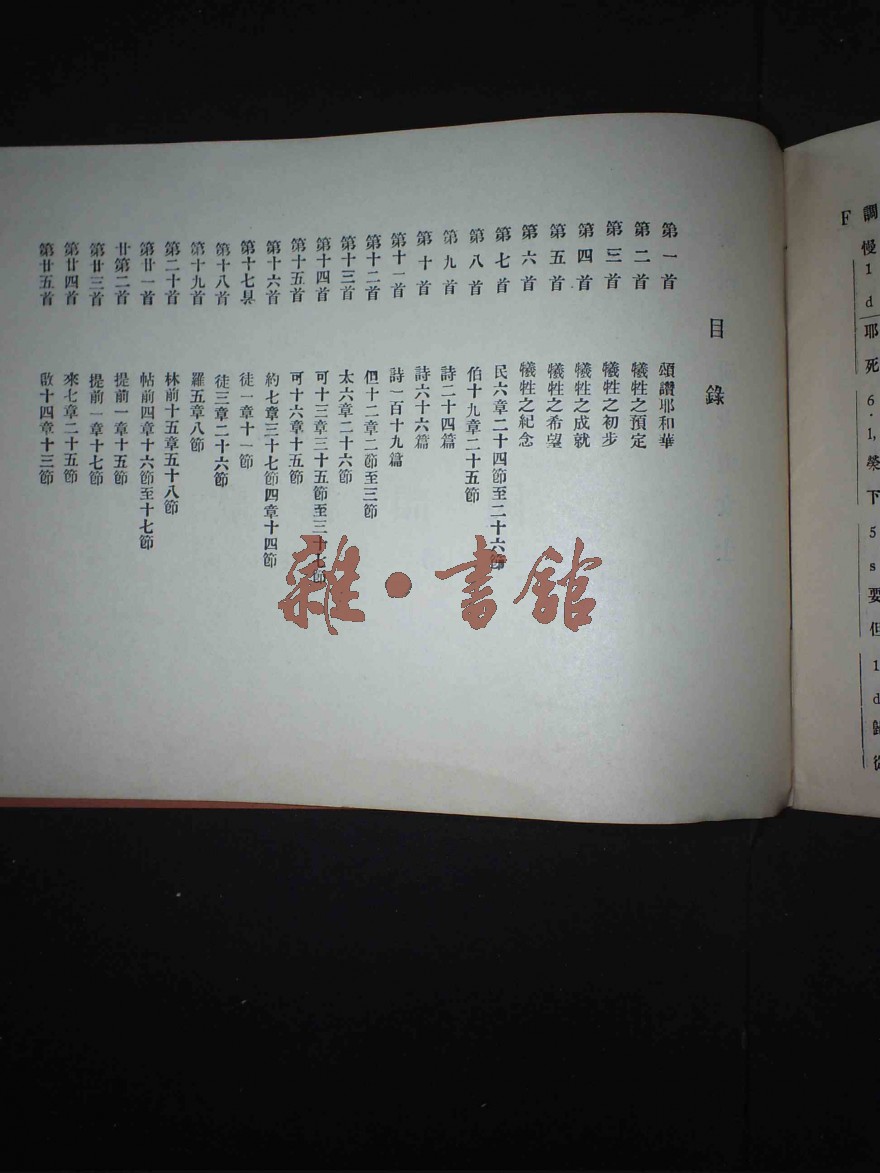 目錄
第一首 頌讚耶和華
第二首 犧牲之預定
第三首 犧牲之初步
第四首 犧牲之成就
第五首 犧牲之希望
第六首 犧牲之紀念
第七首 民六章二十四節至二十六節
第八首 伯十九章二十五節
第九首 詩二十四篇
第十首 詩六十六篇
第十一首 詩一百十九篇
第十二首 但十二章二節至三節
第十三首 太六章二十六節
第十四首 可十三章三十五節至三十七節
第十五首 可十六章十五節
第十六首 約七章三十七節四章十四節
第十七 徒一章十一節
第十八首 徒三章二十六節
第十九首 羅五章八節
第二十首 林前十五章五十八節
第廿一首 帖前四章十六節至十七節
廿第二首 提前一章十五節
第廿三首 提前一章十七節
第廿四首 來七章二十五節
第廿五首 啟十四章十三節
雜·書館
F 調
慢
1
d
耶
死
6·1,
榮
下
5
s
要
但
1
d
歸